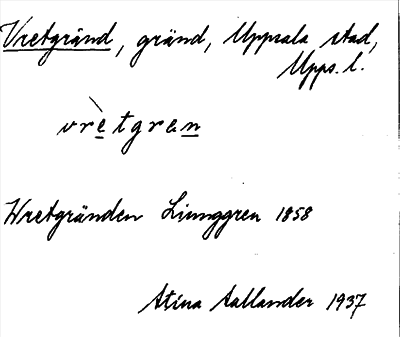 Vretgränd, gränd, Uppsala stad,
Upps. l.
vrètgren
Wretgränden Ljunggren 1858
Stina Aallander 1937